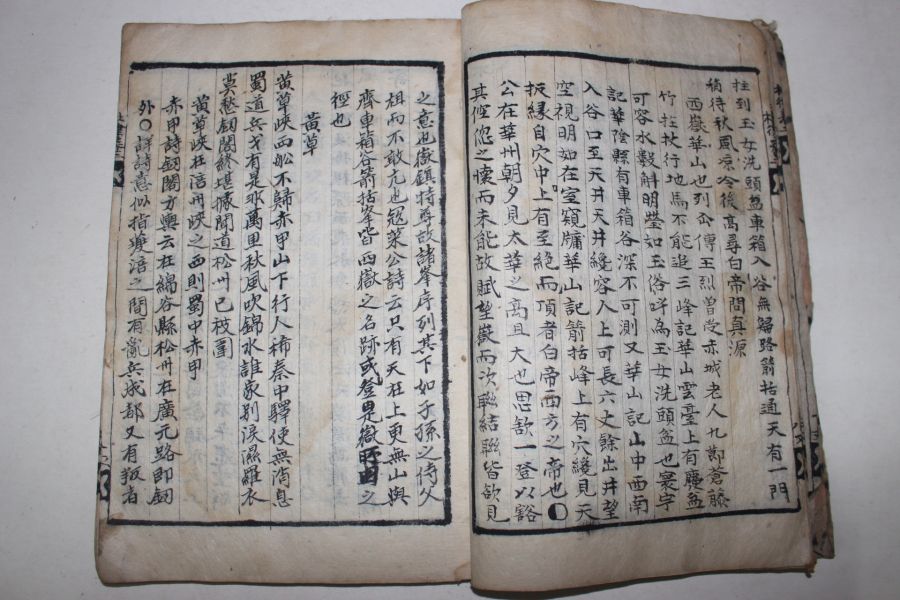 拄到玉女洗頭盆車箱入谷無歸路箭括通天有一門
稍待秋風凉冷後高尋白帝問真源
西嶽華山也列仙傳王烈曾受赤城老人九節蒼藤
竹拄杖行地馬不能追三峰記華山雲臺上有石盆
可容水數斛明瑩如玉俗呼爲玉女洗頭盆也寰宇
記華陰縣有車箱谷深不可測又華山記山中西南
入谷口至天井天井纔容人上可長六丈餘出井望
空視明如在室窺牖華山記箭括峰上有穴纔見天
捉緣自穴中上有至絶而頂者白帝西方之帝也○
公在華州朝夕見太華之高且大也思欲一登以豁
其悾傯之懷而未能故賦望嶽而次聯結聯皆欲見
之意也嶽鎮特尊故諸峯序列其下如子孫之侍父
祖而不敢亢也冦萊公詩云只有天在上更無山與
齊車箱谷箭括峯皆西嶽之名跡或登見嶽之
徑也
黄草
黄草峽西舩不歸赤甲山下行人稀秦中驛使無消息
蜀道兵戈有是非萬里秋風吹錦水誰家別淚濕羅衣
莫愁釼閣終堪據聞道松州已被圍
黄草峽在涪州峽之西則蜀中赤甲
赤甲詩釼閣方輿云在綿谷縣松州在廣元路即釼
外○詳詩意似指夔涪之間有亂兵成都又有叛者